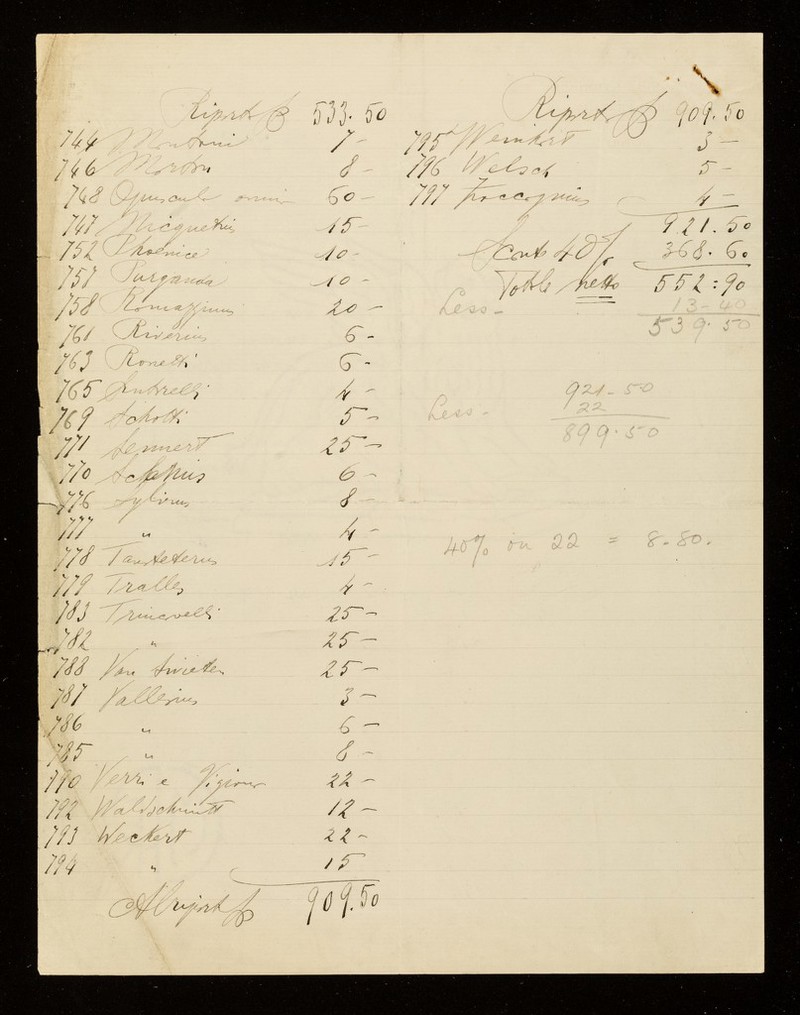 Riporto 533.50
744 Montani 7 -
746 Morton 8 -
748 Opuscula omnia 60 -
747 15 -
752 Phoenice 10 -
757 10 -
758 20 -
761 Riverius 6 -
763 Ronetti 6 -
765 4 -
769 Schotti 5 -
771 Sennert 25 -
770 6 -
776 Sylvius 8 -
777 " 4 -
778 15 -
779 Tralles 4 -
783 Trincavelli 25 -
782 " 25 -
788 Van Swieten 25 -
787 Vallerius 3 -
786 " 6 -
785 " 8 -
790 Verri e 22 -
792 Waldschmitt 12 -
793 Weckert 22 -
794 " 15
A Riportarsi 909.50
Riporto 909.50
795 Weinhart 3 -
796 Welsch 5 -
797 4 -
921.50
Sconto 40% 368.60
Totale netto 552:90
Less - 13-40
539.50
921-50
Less - 22
899.50
40% on 22 = 8.80.